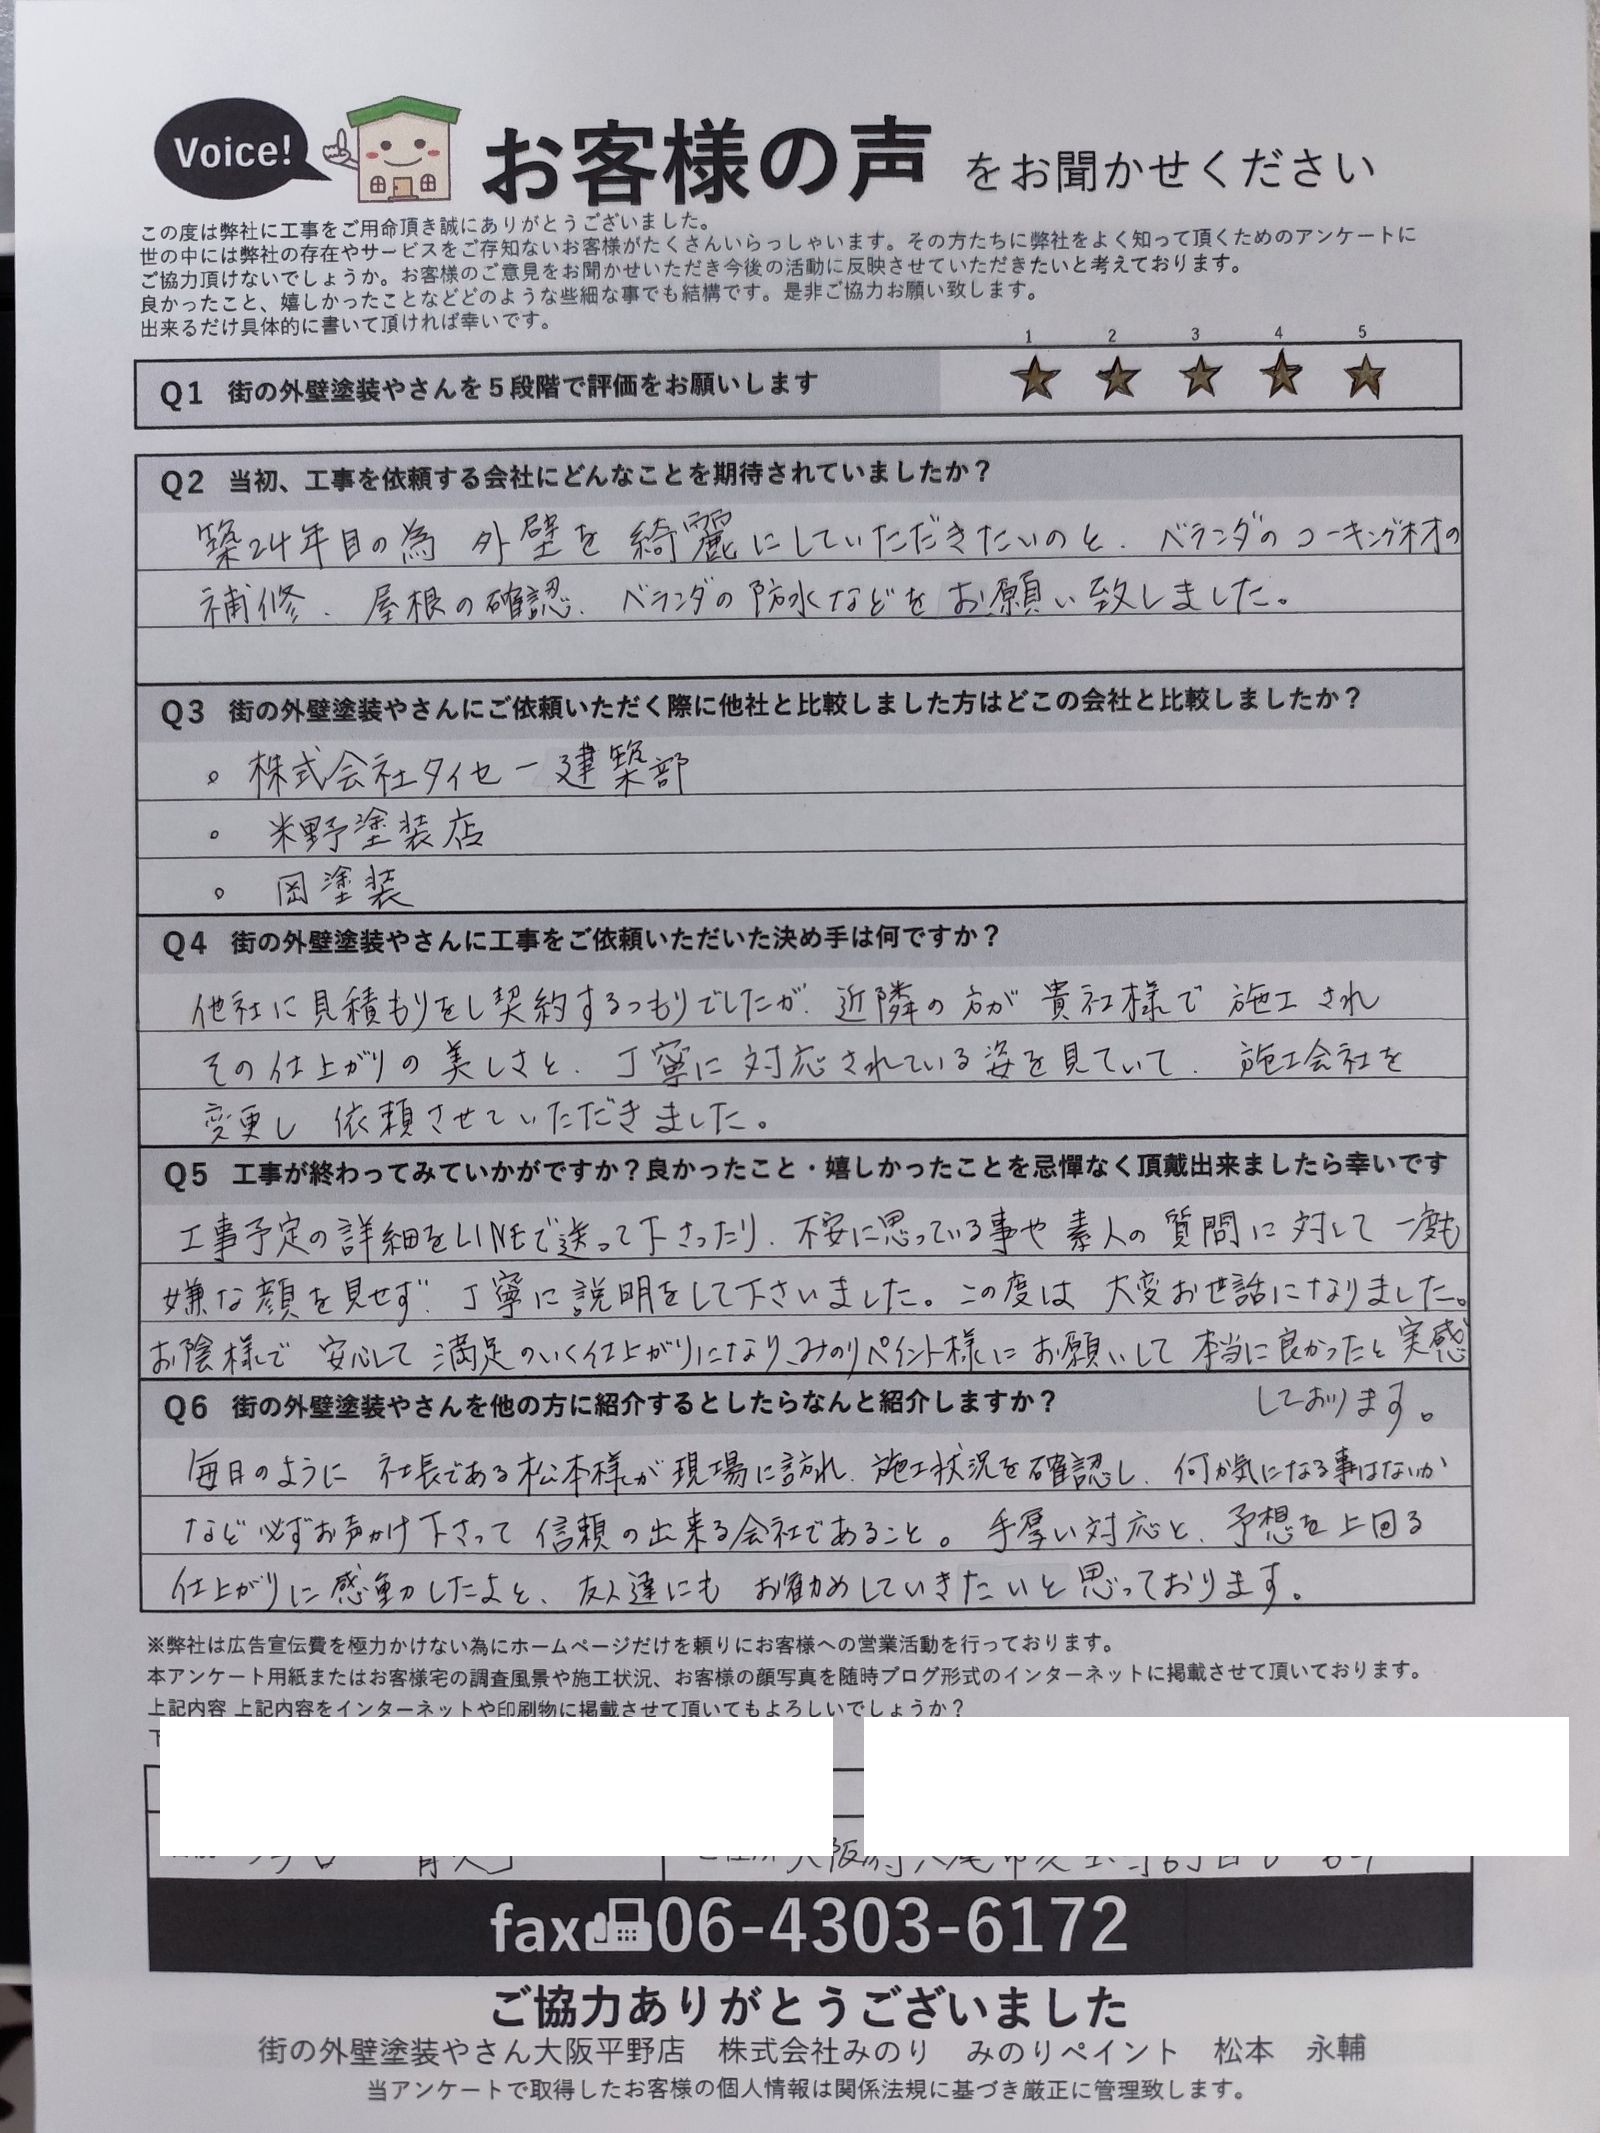 Voice!
お客様の声 をお聞かせください
この度は弊社に工事をご用命頂き誠にありがとうございました。
世の中には弊社の存在やサービスをご存知ないお客様がたくさんいらっしゃいます。その方たちに弊社をよく知って頂くためのアンケートに
ご協力頂けないでしょうか。お客様のご意見をお聞かせいただき今後の活動に反映させていただきたいと考えております。
良かったこと、嬉しかったことなどどのような些細な事でも結構です。是非ご協力お願い致します。
出来るだけ具体的に書いて頂ければ幸いです。
1 2 3 4 5
Q1 街の外壁塗装やさんを5段階で評価をお願いします ★ ★ ★ ★ ★
Q2 当初、工事を依頼する会社にどんなことを期待されていましたか？
築24年目の為 外壁を綺麗にしていただきたいのと、ベランダのコーキング材の
補修、屋根の確認、ベランダの防水などをお願い致しました。
Q3 街の外壁塗装やさんにご依頼いただく際に他社と比較しました方はどこの会社と比較しましたか？
。株式会社タイセー建築部
。米野塗装店
。岡塗装
Q4 街の外壁塗装やさんに工事をご依頼いただいた決め手は何ですか？
他社に見積もりをし契約するつもりでしたが、近隣の方が貴社様で施工され
その仕上がりの美しさと、丁寧に対応されている姿を見ていて、施工会社を
変更し 依頼させていただきました。
Q5 工事が終わってみていかがですか？良かったこと・嬉しかったことを忌憚なく頂戴出来ましたら幸いです
工事予定の詳細をLINEで送って下さったり、不安に思っている事や素人の質問に対して一度も
嫌な顔を見せず、丁寧に説明をして下さいました。この度は 大変お世話になりました。
お陰様で 安心して満足のいく仕上がりになり、みのりペイント様にお願いして本当に良かったと実感
しております。
Q6 街の外壁塗装やさんを他の方に紹介するとしたらなんと紹介しますか？
毎日のように 社長である松本様が現場に訪れ、施工状況を確認し、何か気になる事はないか
など必ずお声かけ下さって信頼の出来る会社であること。手厚い対応と、予想を上回る
仕上がりに感動したよと、友人達にも お勧めしていきたいと思っております。
※弊社は広告宣伝費を極力かけない為にホームページだけを頼りにお客様への営業活動を行っております。
本アンケート用紙またはお客様宅の調査風景や施工状況、お客様の顔写真を随時ブログ形式のインターネットに掲載させて頂いております。
上記内容 上記内容をインターネットや印刷物に掲載させて頂いてもよろしいでしょうか？
fax 06-4303-6172
ご協力ありがとうございました
街の外壁塗装やさん大阪平野店 株式会社みのり みのりペイント 松本 永輔
当アンケートで取得したお客様の個人情報は関係法規に基づき厳正に管理致します。